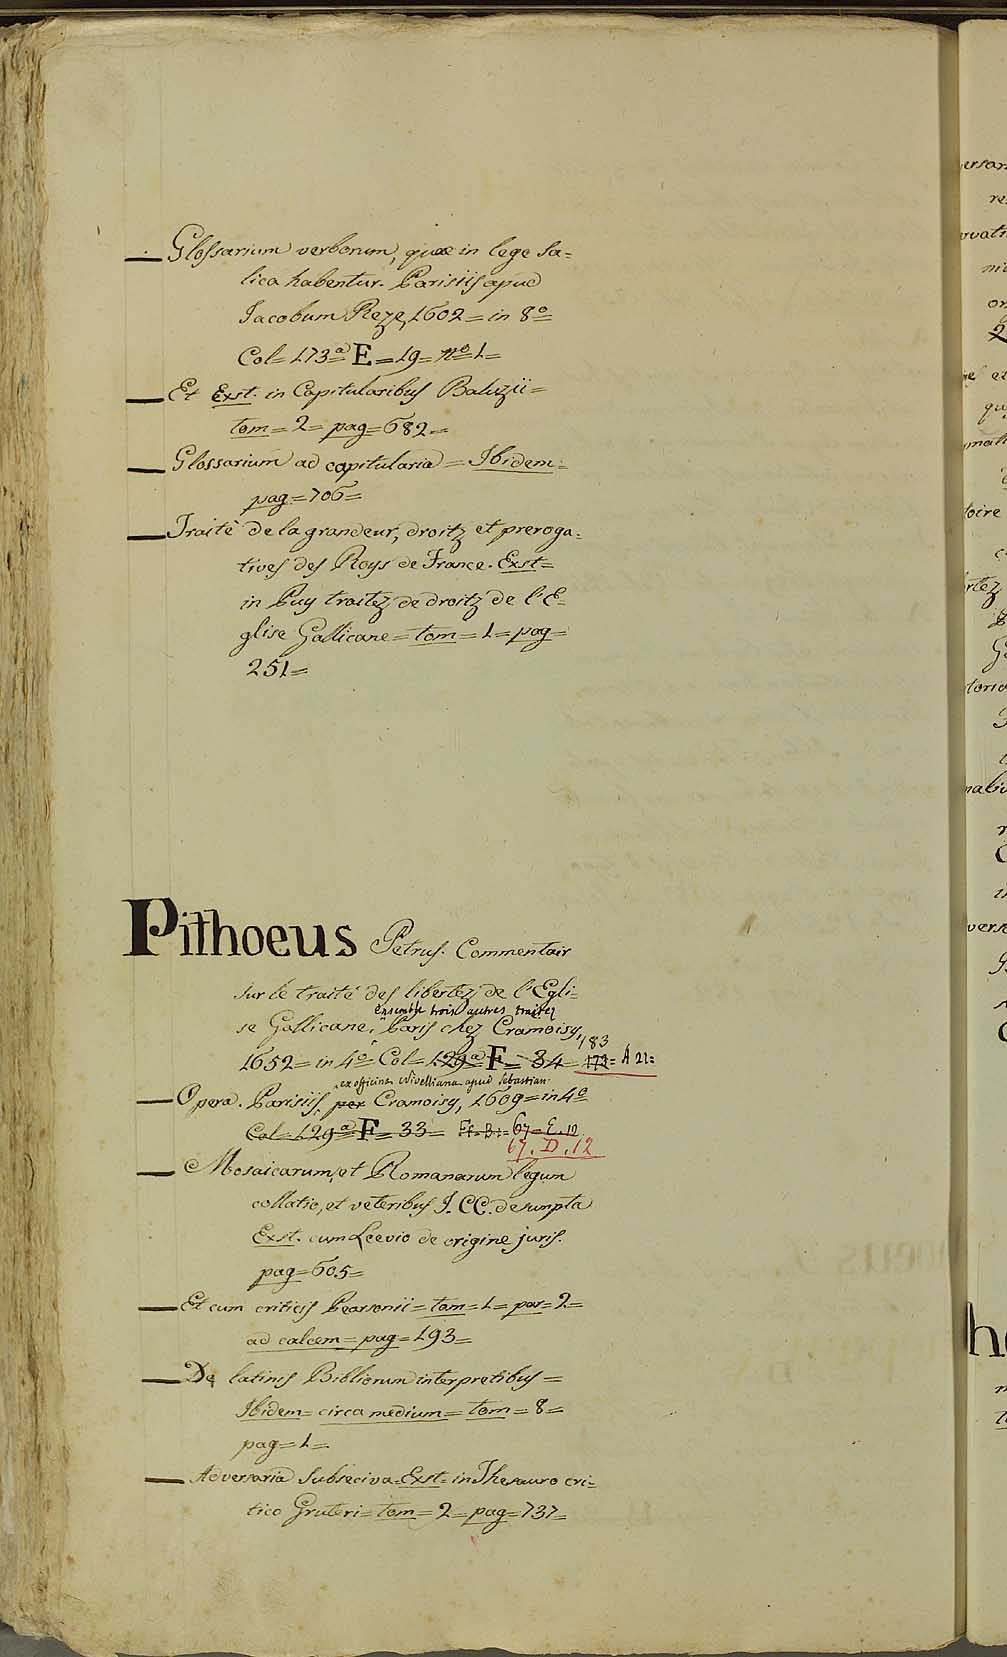 — Glossarium verborum, quæ in lege Sa=
lica habentur. Parisiis apud
Jacobum Reze, 1602 = in 8º=
Col= 173ª E = 19 = nº 1 =
— Et Exst. in Capitularibus Baluzii =
tom = 2 = pag = 682 =
— Glossarium ad capitularia = Ibidem =
pag = 706 =
— Traité de la grandeur, droitz et preroga=
tives des Roys de France. Exst=
in Puy traitez de droitz de l'E=
glise Gallicane = tom = 1 = pag =
251 =
Pithoeus Petrus. Commentair
sur le traité des libertez de l'Egli=
ensemble trois autres traitez
se Gallicane, Paris chez Cramoisy,
183
1652 = in 4º Col= 129ª F = 34 = 173 = A 21 =
ex officina Nivelliana apud Sebastian
— Opera. Parisiis, per Cramoisy, 1609 = in 4º
Col= 129ª F = 33 = Et = B = 67 = E. 12
67. D. 12
— Mosaicarum, et Romanarum legum
collatio, et veteribus J. CC. desumpta
Exst. cum Leevio de origine juris.
pag = 605 =
— Et cum criticis Pearsonii = tom = 1 = par = 2 =
ad calcem = pag = 193 =
— De latinis Bibliorum interpretibus =
Ibidem = circa medium = tom = 8 =
pag = 1 =
— Adversaria Subseciva = Exst = in Thesauro cri=
tico Gruteri = tom = 2 = pag = 737 =